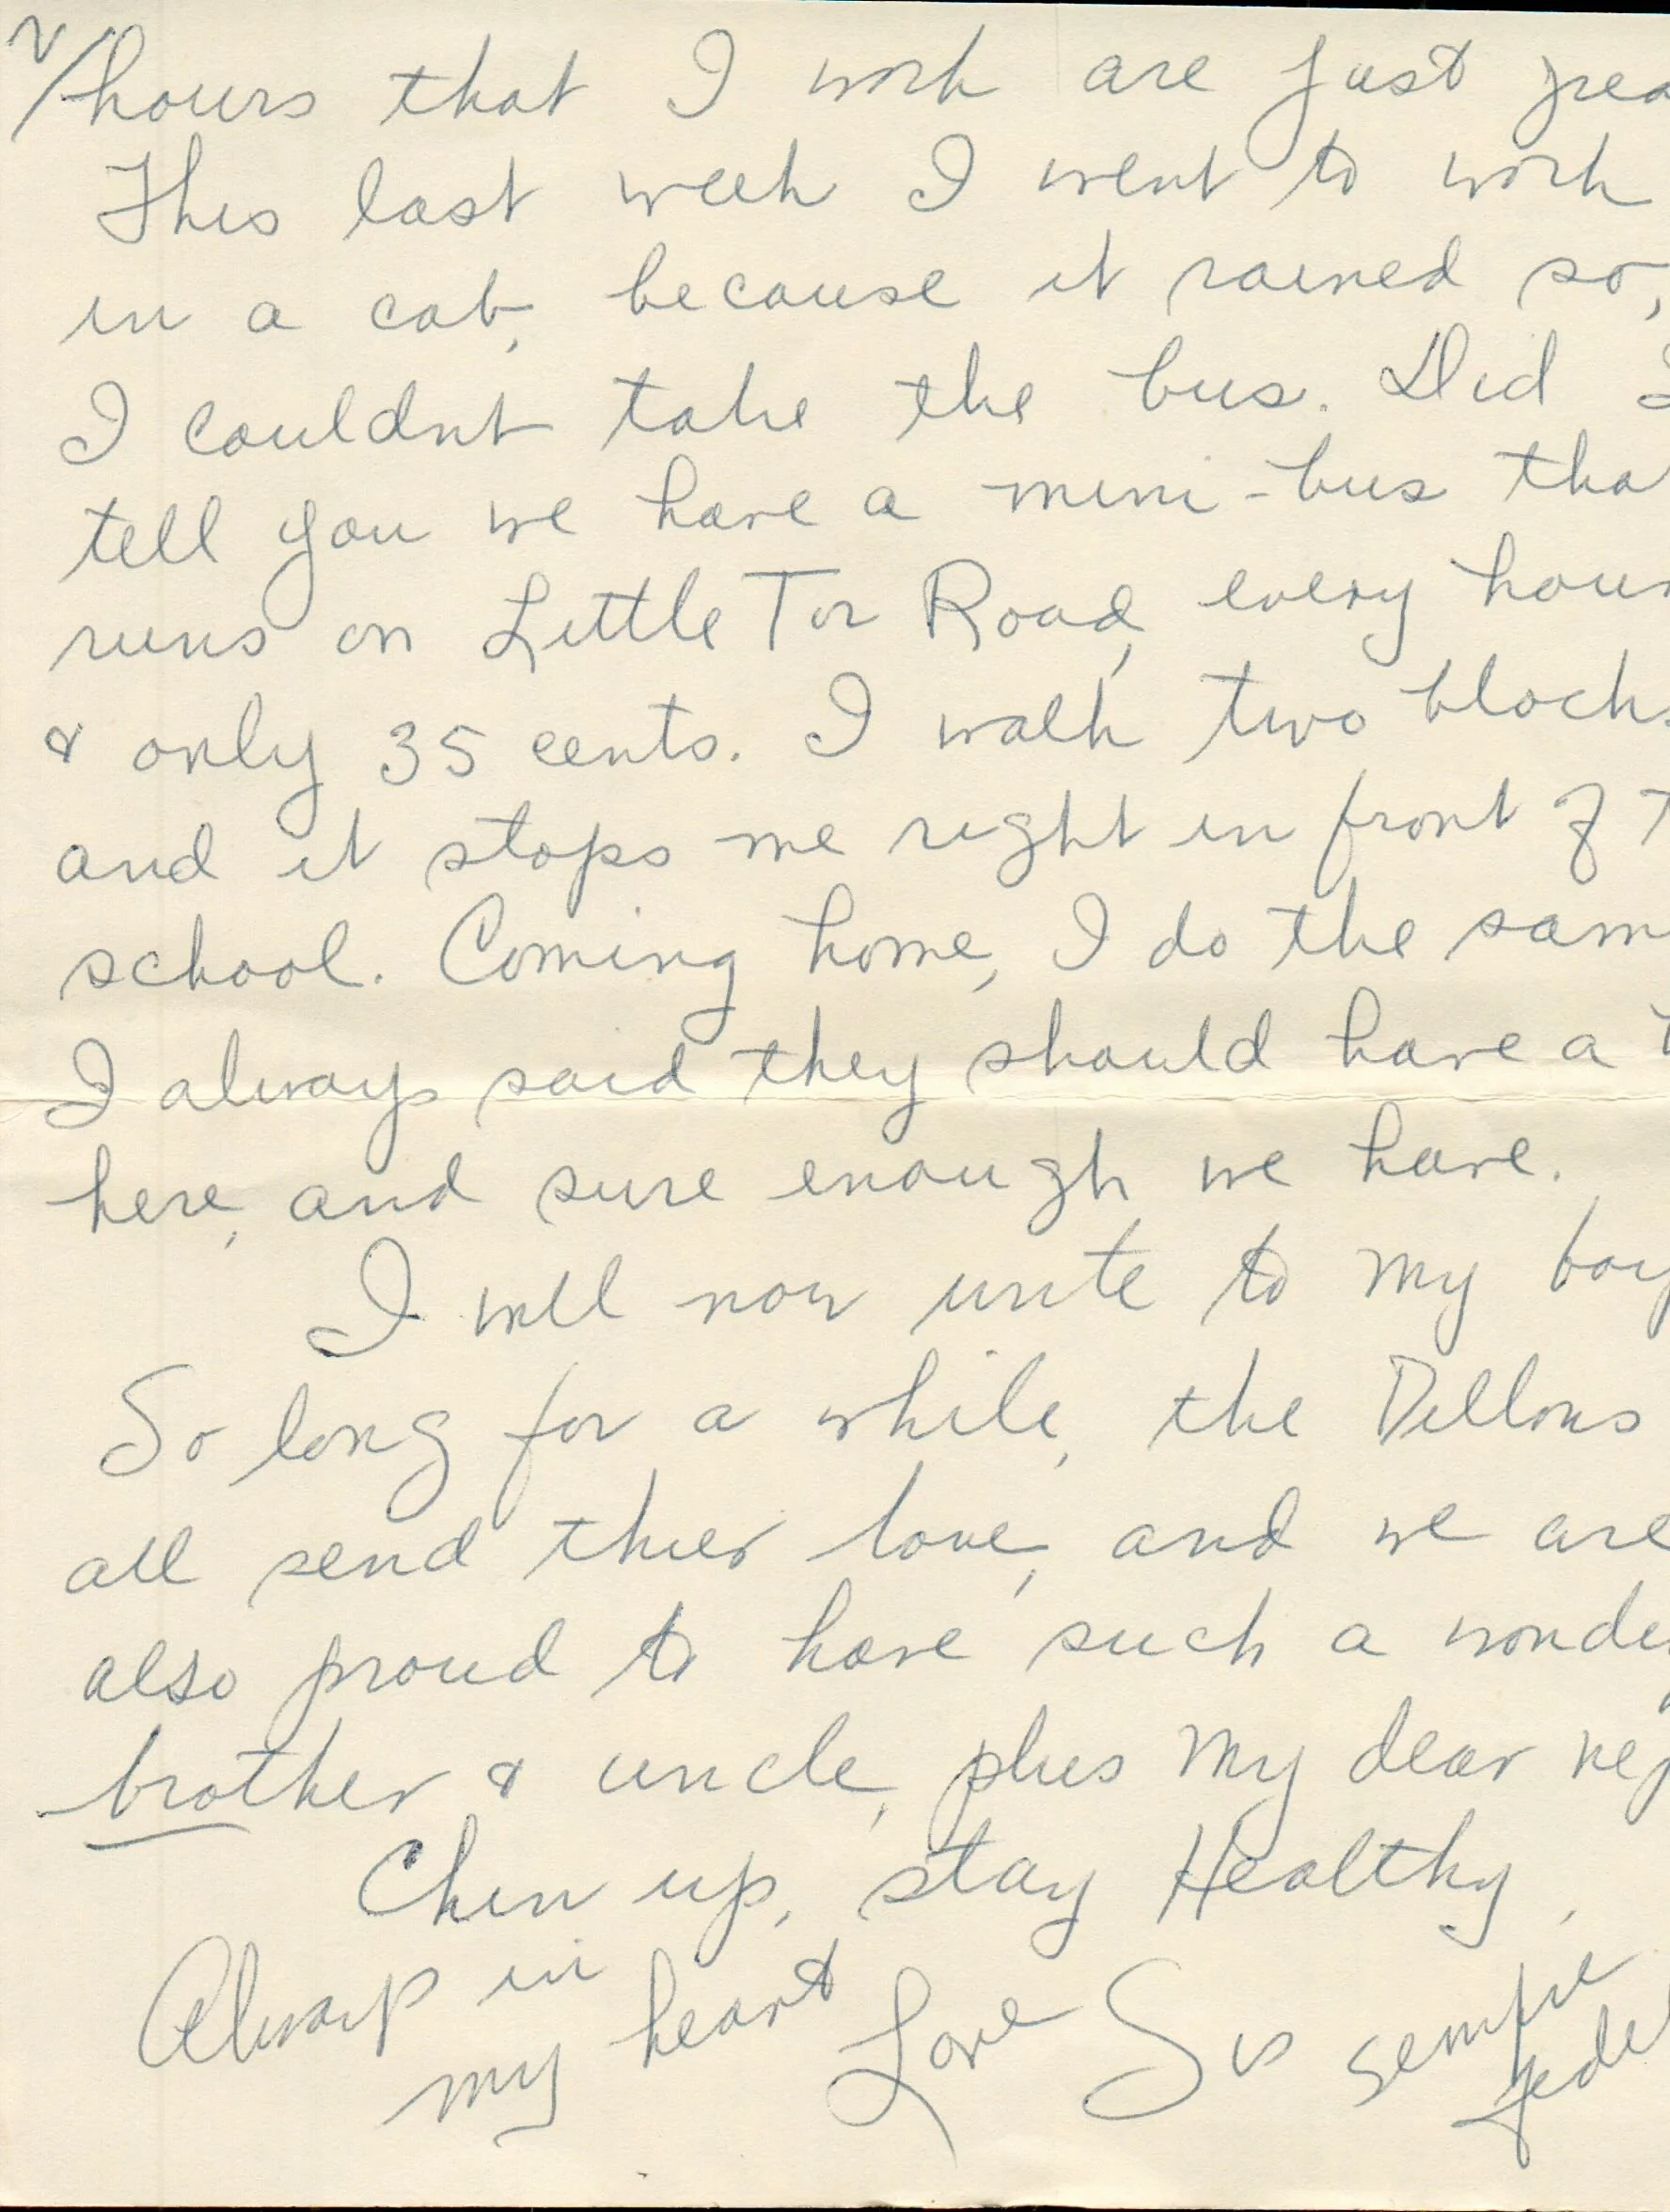 2/
hours that I work are just
This last week I went to work
in a cab, because it rained so,
I couldnt take the bus. Did
tell you we have a mini-bus tha
runs on Little Tor Road, every hour
& only 35 cents. I walk two blocks
and it stops me right in front of
school. Coming home, I do the sam
I always said they should have a
here, and sure enough we have.
I will now write to my boy
So long for a while, the Dillons
all send thier love, and we are
also proud to have such a wonde
brother & uncle, plus my dear nep
Chin up, stay Healthy,
Always in my heart Love Sis sempre fedel